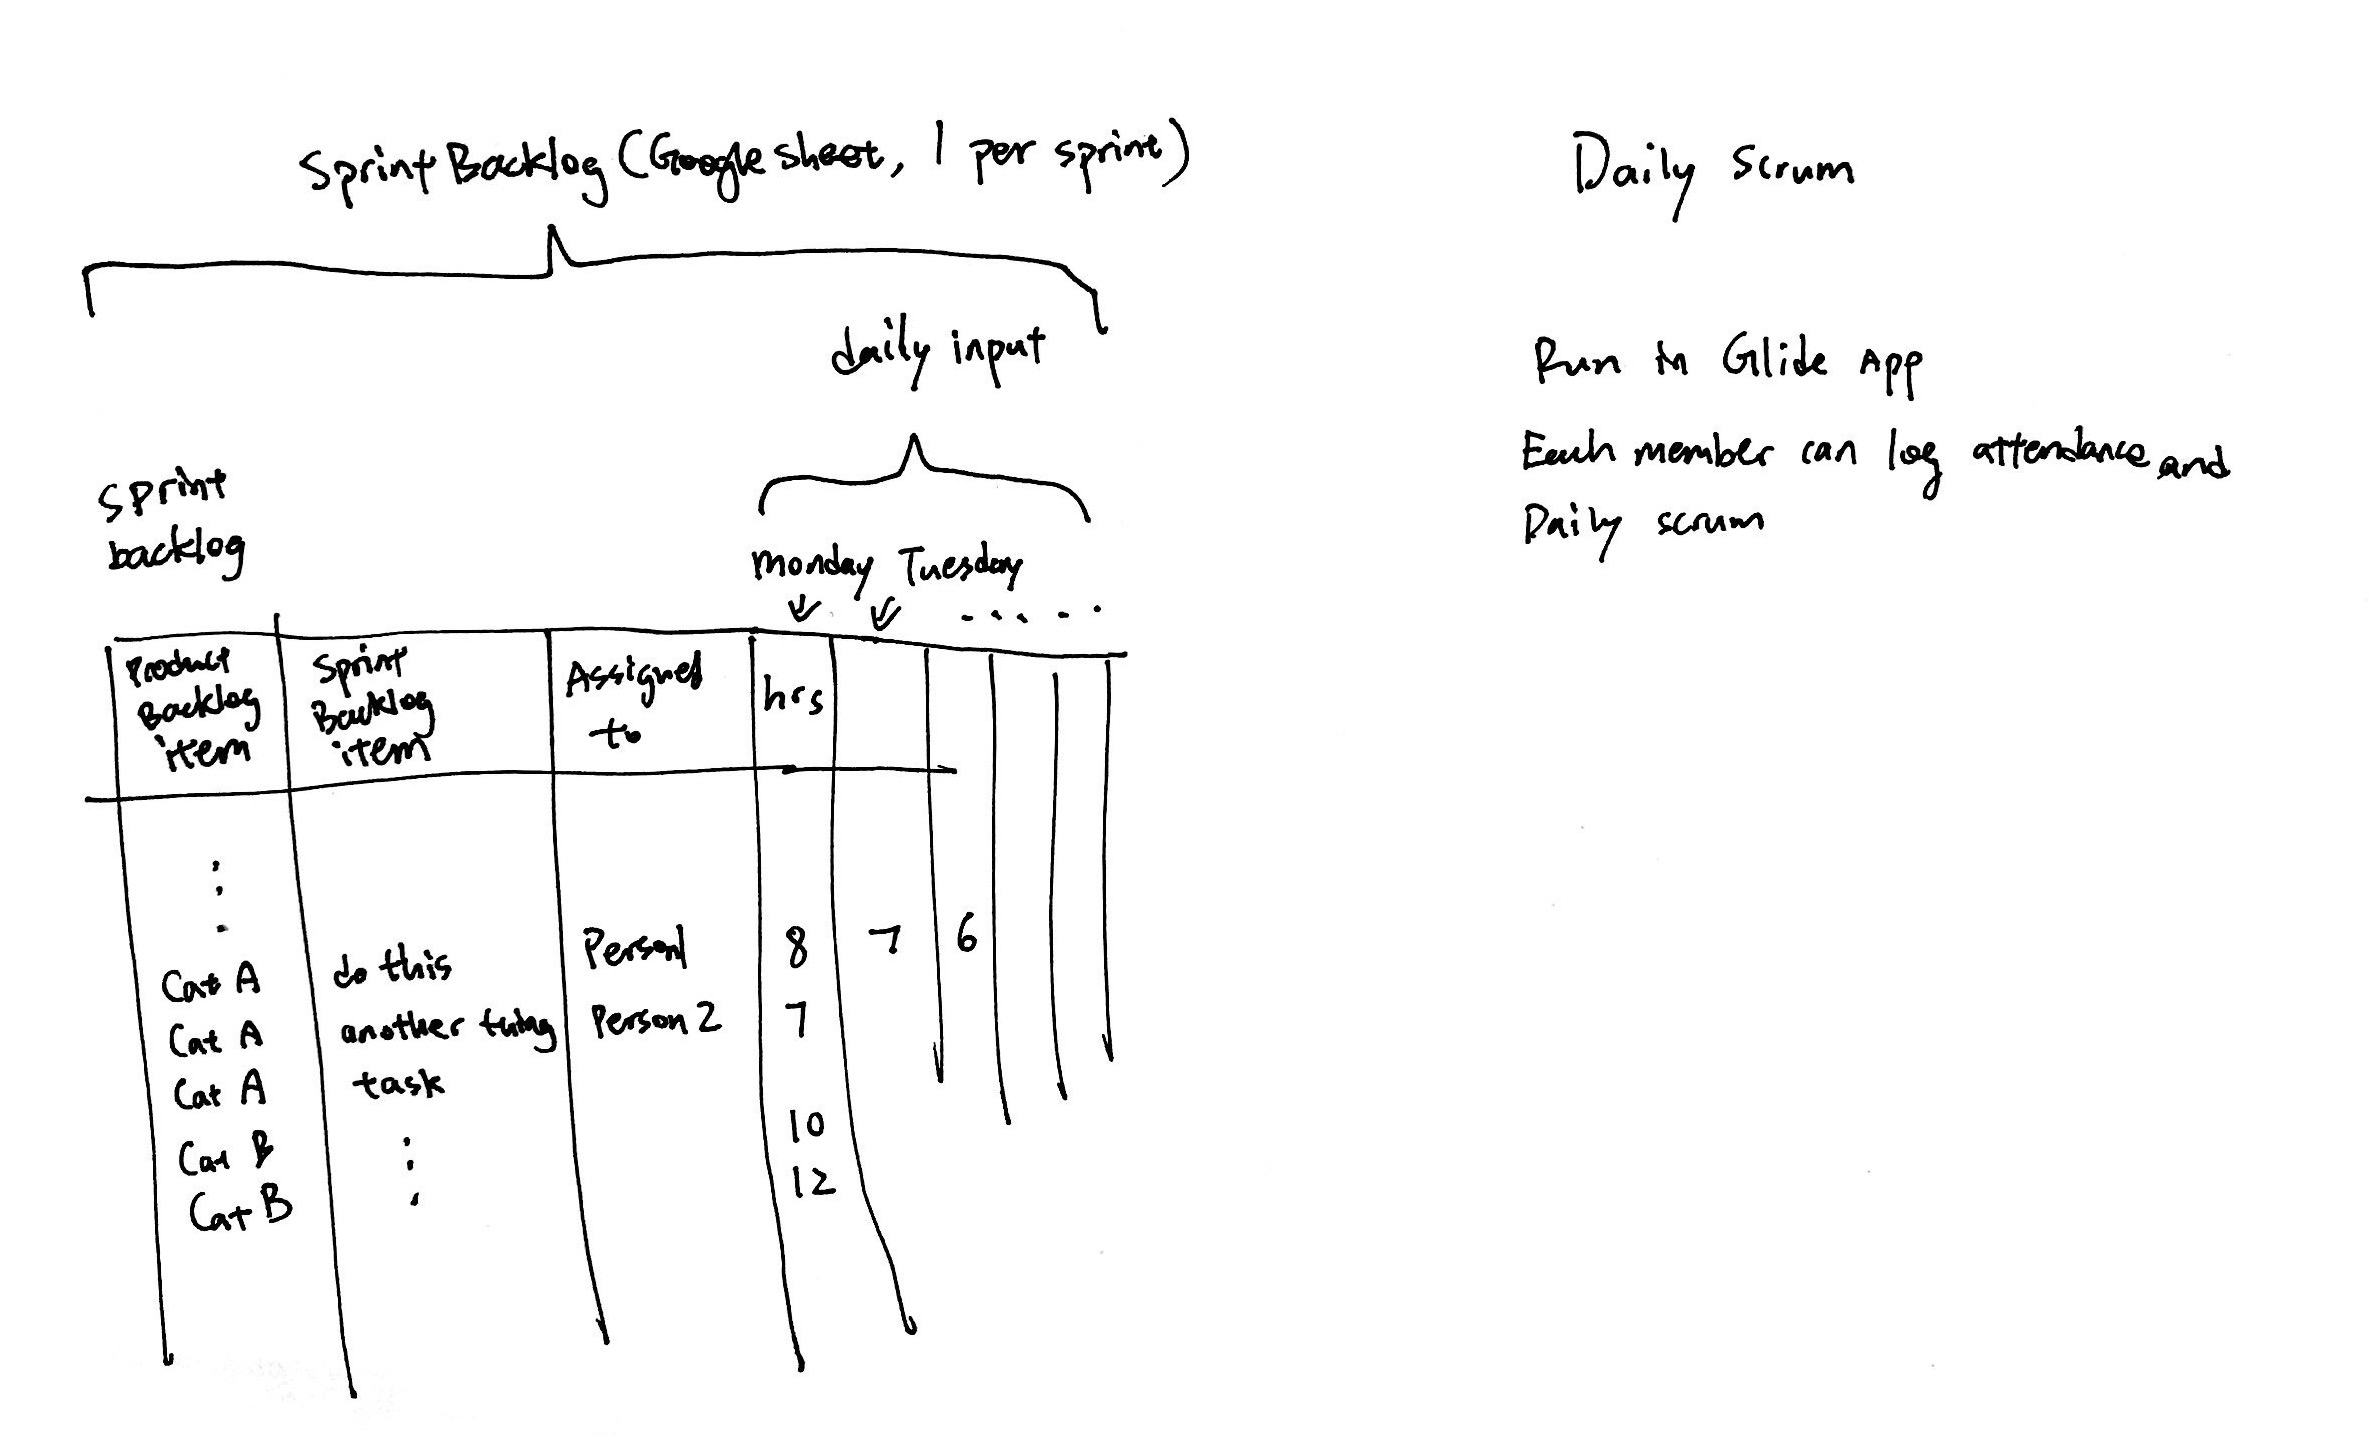 Sprint Backlog (Google sheet, 1 per sprint)
daily input
Sprint
backlog
monday Tuesday
Product
Backlog
item
Sprint
Backlog
item
Assigned
to
hrs
Cat A do this Person1 8 7 6
Cat A another thing Person 2 7
Cat A task
Cat B 10
Cat B 12
Daily Scrum
Run in Glide App
Each member can log attendance and
Daily scrum